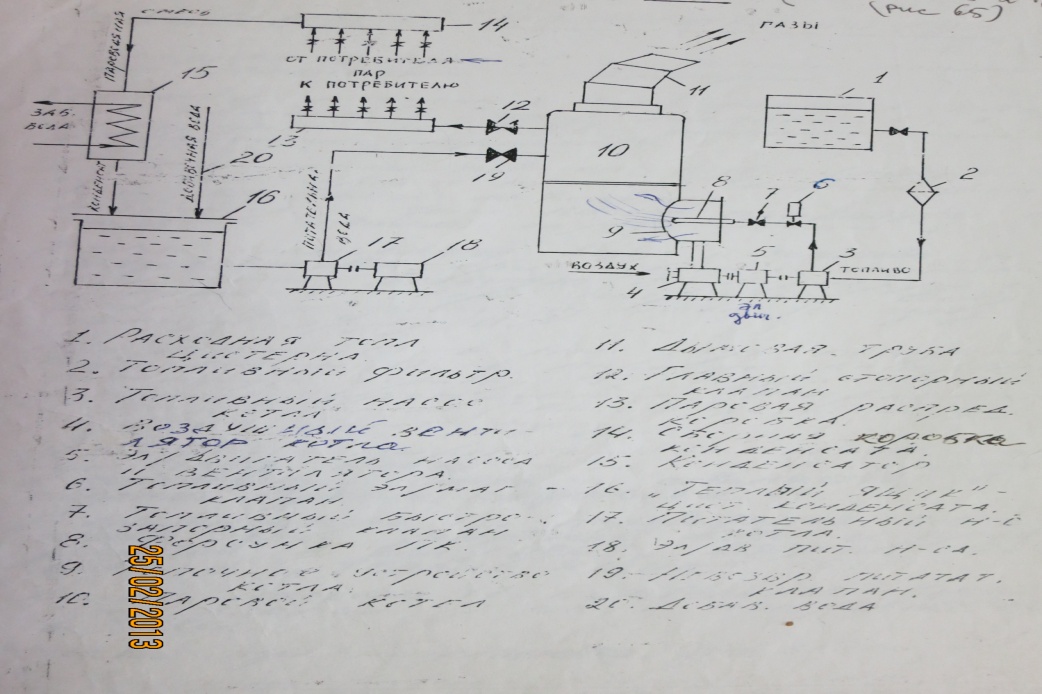 (рис 65)
СМЕСЬ
14
ГАЗЫ
ПАРОВОДЯНАЯ
ОТ ПОТРЕБИТЕЛЯ
ПАР
К ПОТРЕБИТЕЛЮ
15
11
1
12
ЗАБ.
ВОДА
13
10
20
19
2
КОНДЕНСАТ
ДОБАВОЧНАЯ ВОДА
16
8
7
6
ПИТАТЕЛЬНАЯ
ВОДА
17
18
9
5
3
ВОЗДУХ
ТОПЛИВО
4
эл
двиг.
1. РАСХОДНАЯ ТОПЛ
ЦИСТЕРНА.
2. ТОПЛИВНЫЙ ФИЛЬТР.
3. ТОПЛИВНЫЙ НАСОС
КОТЛА.
4. ВОЗДУШНЫЙ ВЕНТИ
ЛЯТОР КОТЛА.
5. ЭЛ/ДВИГАТЕЛЬ НАСОСА
И ВЕНТИЛЯТОРА.
6. ТОПЛИВНЫЙ ЭЛ/МАГ -
КЛАПАН
7. ТОПЛИВНЫЙ БЫСТРО-
ЗАПОРНЫЙ КЛАПАН
8. ФОРСУНКА ПК.
9. ТОПОЧНОЕ УСТРОЙСТВО
КОТЛА.
10. ПАРОВОЙ КОТЕЛ
11. ДЫМОВАЯ. ТРУБА
12. ГЛАВНЫЙ СТОПОРНЫЙ
КЛАПАН
13. ПАРОВАЯ РАСПРЕД.
КОРОБКА.
14. СБОРНАЯ КОРОБКА
КОНДЕНСАТА.
15. КОНДЕНСАТОР
16. „ТЕПЛЫЙ ЯЩИК"-
ЦИСТ. КОНДЕНСАТА.
17. ПИТАТЕЛЬНЫЙ Н-С
КОТЛА.
18. ЭЛ/ДВ ПИТ. Н-СА.
19. НЕВОЗВР ПИТАТ.
КЛАПАН.
20. ДОБАВ. ВОДА
25/02/2013